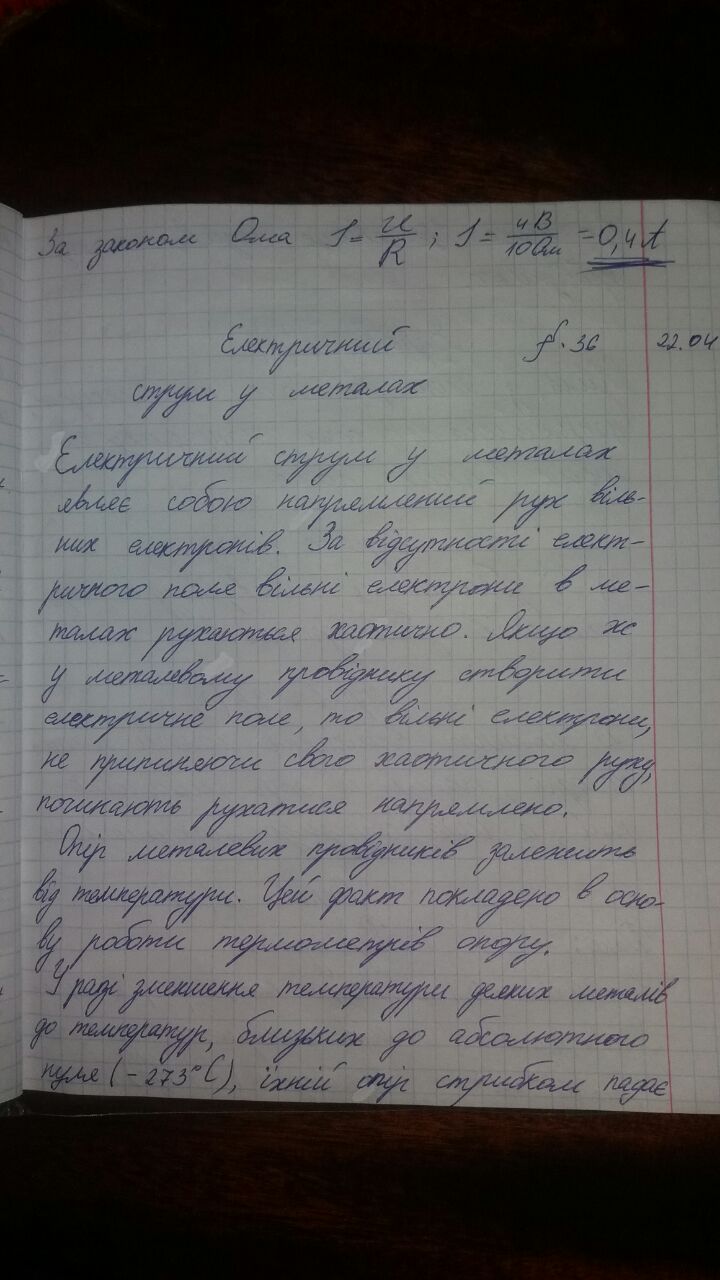 За законом Ома I = U/R ; I = 4В/10Ом = 0,4 А
Електричний § 36 22.04
струм у металах
Електричний струм у металах
являє собою напрямлений рух віль-
них електронів. За відсутності елект-
ричного поля вільні електрони в ме-
талах рухаються хаотично. Якщо ж
у металевому провіднику створити
електричне поле, то вільні електрони,
не припиняючи свого хаотичного руху,
починають рухатися напрямлено.
Опір металевих провідників залежить
від температури. Цей факт покладено в осно-
ву роботи термометрів опору.
У разі зменшення температури деяких металів
до температур, близьких до абсолютного
нуля (-273°C), їхній опір стрибком падає